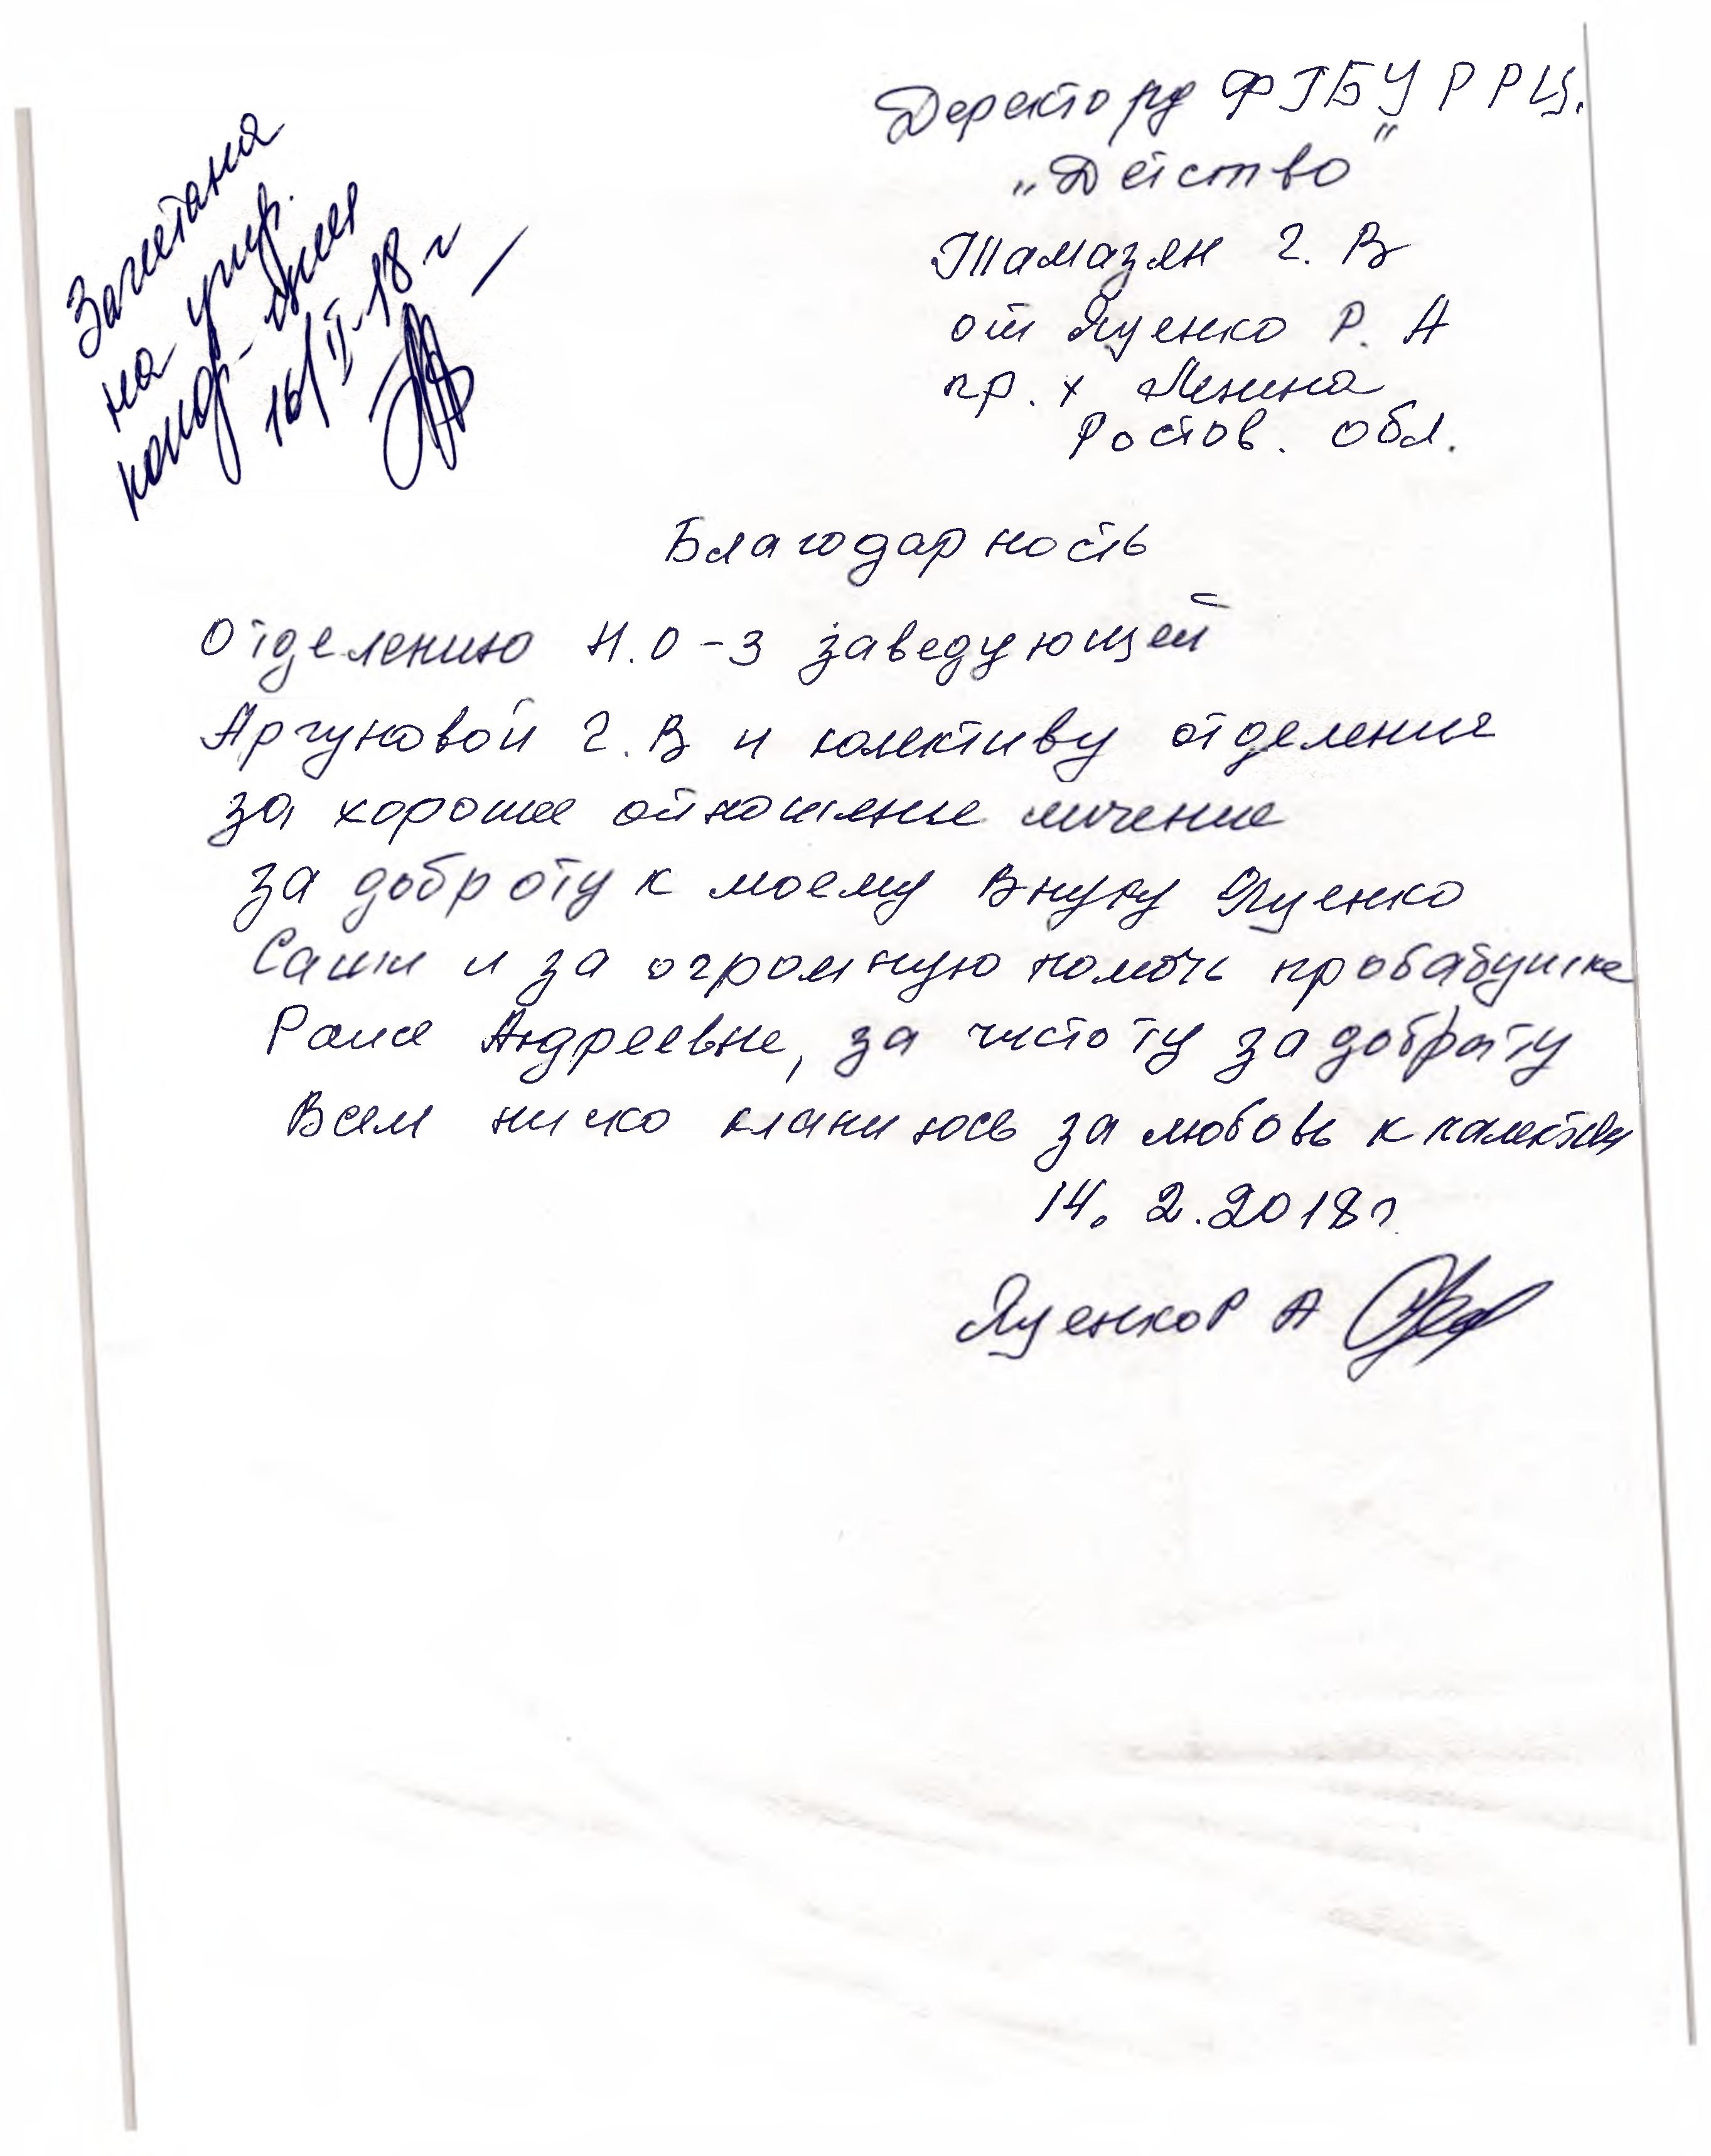 Зачетана
на утр.
конф-ции
16/II-18 г
Деректору ФГБУ РРЦ.
„Детство"
Тамазян Г. В
от Яценко Р. А
пр. х Ленина
Ростов. обл.
Благодарность
Отделению Н.О-3 заведующей
Аргуновой Г. В и колективу отделения
за хорошее отношение личение
за доброту к моему внуку Яценко
Саши и за огромную помочь пробабушке
Раисе Андреевне, за чистоту за доброту
Всем ниско кланиюсь за любовь к
14. 2. 2018г
Яценко Р А